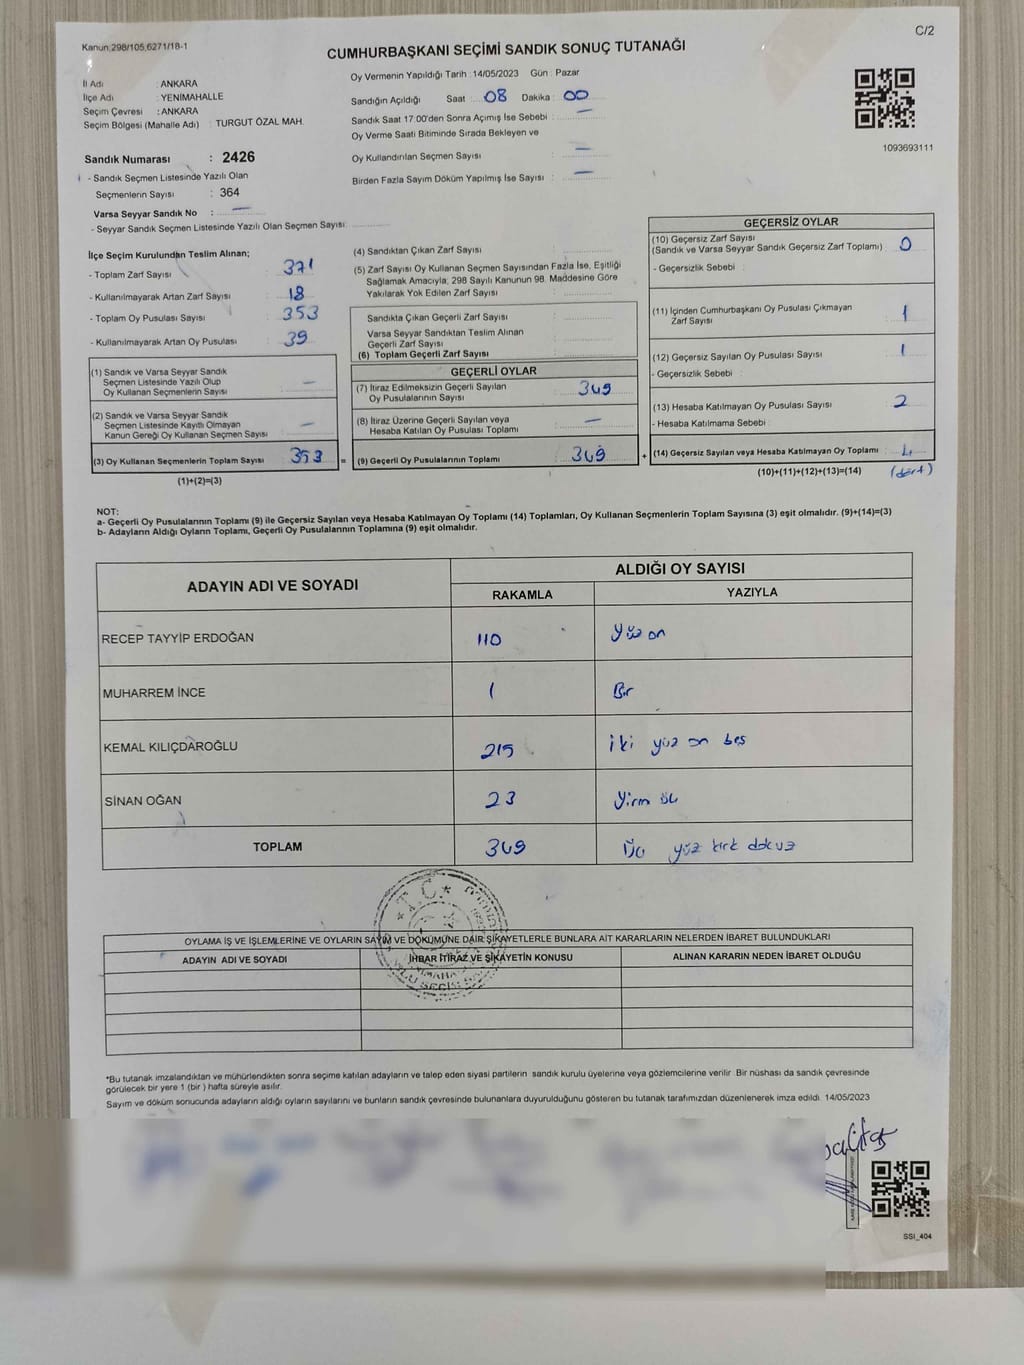 Kanun;298/105,6271/18-1
C/2
CUMHURBAŞKANI SEÇİMİ SANDIK SONUÇ TUTANAĞI
İl Adı : ANKARA
İlçe Adı : YENİMAHALLE
Seçim Çevresi : ANKARA
Seçim Bölgesi (Mahalle Adı) : TURGUT ÖZAL MAH.
Sandık Numarası : 2426
- Sandık Seçmen Listesinde Yazılı Olan
Seçmenlerin Sayısı : 364
Varsa Seyyar Sandık No : —
- Seyyar Sandık Seçmen Listesinde Yazılı Olan Seçmen Sayısı:
Oy Vermenin Yapıldığı Tarih :14/05/2023 Gün : Pazar
Sandığın Açıldığı Saat : 08 Dakika : 00
Sandık Saat 17:00'den Sonra Açımış İse Sebebi : —
Oy Verme Saati Bitiminde Sırada Bekleyen ve
Oy Kullandırılan Seçmen Sayısı : —
Birden Fazla Sayım Döküm Yapılmış İse Sayısı : —
1093693111
İlçe Seçim Kurulundan Teslim Alınan;
- Toplam Zarf Sayısı : 371
- Kullanılmayarak Artan Zarf Sayısı : 18
- Toplam Oy Pusulası Sayısı : 353
- Kullanılmayarak Artan Oy Pusulası : 39
(1) Sandık ve Varsa Seyyar Sandık
Seçmen Listesinde Yazılı Olup
Oy Kullanan Seçmenlerin Sayısı : —
(2) Sandık ve Varsa Seyyar Sandık
Seçmen Listesinde Kayıtlı Olmayan
Kanun Gereği Oy Kullanan Seçmen Sayısı : —
(3) Oy Kullanan Seçmenlerin Toplam Sayısı : 353 =
(1)+(2)=(3)
(4) Sandıktan Çıkan Zarf Sayısı :
(5) Zarf Sayısı Oy Kullanan Seçmen Sayısından Fazla İse, Eşitliği
Sağlamak Amacıyla, 298 Sayılı Kanunun 98. Maddesine Göre
Yakılarak Yok Edilen Zarf Sayısı :
Sandıkta Çıkan Geçerli Zarf Sayısı :
Varsa Seyyar Sandıktan Teslim Alınan
Geçerli Zarf Sayısı :
(6) Toplam Geçerli Zarf Sayısı :
GEÇERLİ OYLAR
(7) İtiraz Edilmeksizin Geçerli Sayılan
Oy Pusulalarının Sayısı : 349
(8) İtiraz Üzerine Geçerli Sayılan veya
Hesaba Katılan Oy Pusulası Toplamı : —
(9) Geçerli Oy Pusulalarının Toplamı : 349 +
GEÇERSİZ OYLAR
(10) Geçersiz Zarf Sayısı
(Sandık ve Varsa Seyyar Sandık Geçersiz Zarf Toplamı) : 0
- Geçersizlik Sebebi :
(11) İçinden Cumhurbaşkanı Oy Pusulası Çıkmayan
Zarf Sayısı : 1
(12) Geçersiz Sayılan Oy Pusulası Sayısı : 1
- Geçersizlik Sebebi :
(13) Hesaba Katılmayan Oy Pusulası Sayısı : 2
- Hesaba Katılmama Sebebi :
(14) Geçersiz Sayılan veya Hesaba Katılmayan Oy Toplamı : 4
(10)+(11)+(12)+(13)=(14) (dört)
NOT:
a- Geçerli Oy Pusulalarının Toplamı (9) ile Geçersiz Sayılan veya Hesaba Katılmayan Oy Toplamı (14) Toplamları, Oy Kullanan Seçmenlerin Toplam Sayısına (3) eşit olmalıdır. (9)+(14)=(3)
b- Adayların Aldığı Oyların Toplamı, Geçerli Oy Pusulalarının Toplamına (9) eşit olmalıdır.
ADAYIN ADI VE SOYADI ALDIĞI OY SAYISI
RAKAMLA YAZIYLA
RECEP TAYYİP ERDOĞAN 110 Yüz on
MUHARREM İNCE 1 Bir
KEMAL KILIÇDAROĞLU 215 iki yüz on beş
SİNAN OĞAN 23 Yirm üç
TOPLAM 349 Üç yüz kırk dokuz
OYLAMA İŞ VE İŞLEMLERİNE VE OYLARIN SAYIM VE DÖKÜMÜNE DAİR ŞİKAYETLERLE BUNLARA AİT KARARLARIN NELERDEN İBARET BULUNDUKLARI
ADAYIN ADI VE SOYADI İHBAR İTİRAZ VE ŞİKAYETİN KONUSU ALINAN KARARIN NEDEN İBARET OLDUĞU
T.C.
*Bu tutanak imzalandıktan ve mühürlendikten sonra seçime katılan adayların ve talep eden siyasi partilerin sandık kurulu üyelerine veya gözlemcilerine verilir. Bir nüshası da sandık çevresinde
görülecek bir yere 1 (bir) hafta süreyle asılır.
Sayım ve döküm sonucunda adayların aldığı oyların sayılarını ve bunların sandık çevresinde bulunanlara duyurulduğunu gösteren bu tutanak tarafımızdan düzenlenerek imza edildi. 14/05/2023
SSI_404